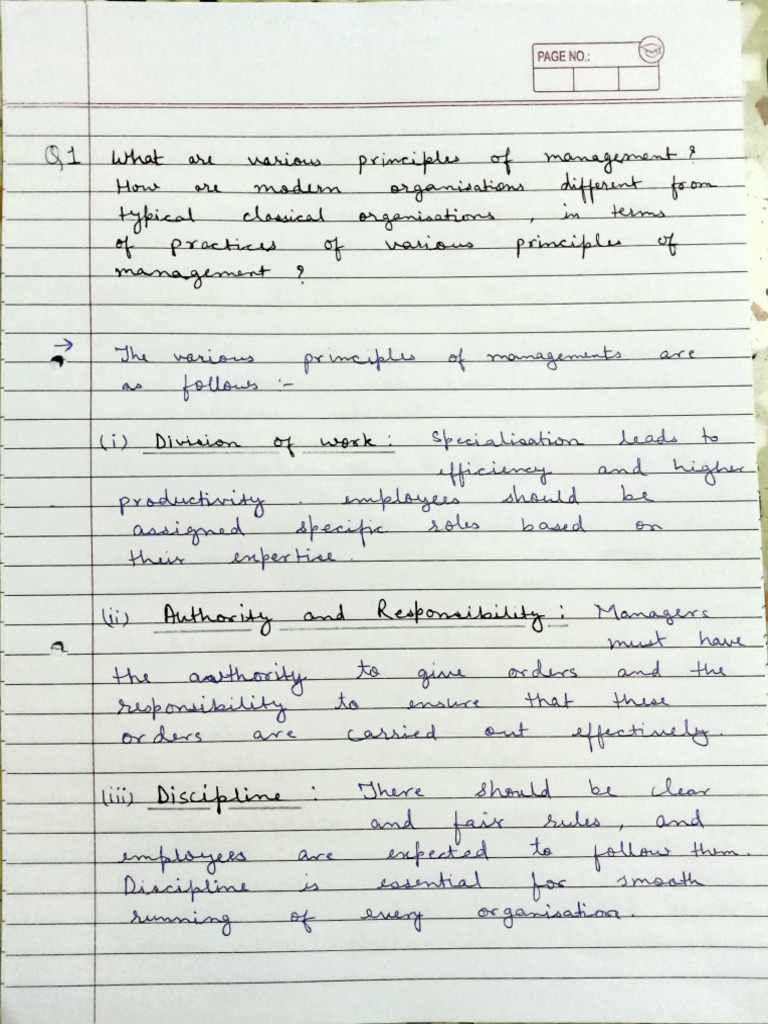 PAGE NO.:
Q1 What are various principles of management ?
How are modern organisations different from
typical classical organisations , in terms
of practices of various principles of
management ?
→ The various principles of managements are
as follows :-
(i) Division of work : Specialisation leads to
efficiency and higher
productivity . employees should be
assigned specific roles based on
their expertise .
(ii) Authority and Responsibility : Managers
must have
the authority to give orders and the
responsibility to ensure that these
orders are carried out effectively.
(iii) Discipline : There should be clear
and fair rules, and
employees are expected to follow them.
Discipline is essential for smooth
running of every organisation.